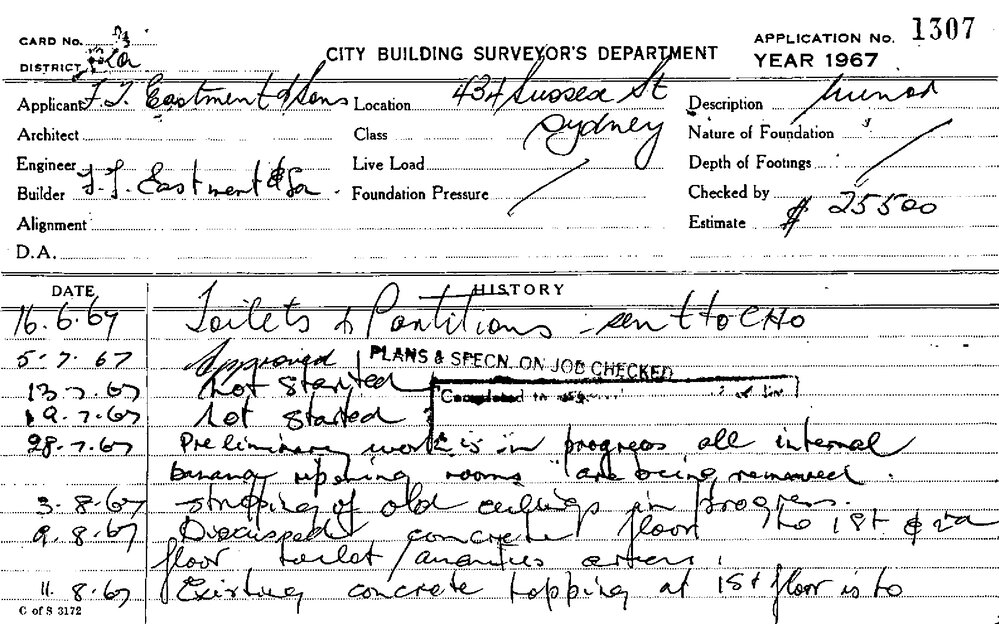 CARD No.
DISTRICT
CITY BUILDING SURVEYOR'S DEPARTMENT
APPLICATION No. 1307
YEAR 1967
Applicant F. T. Eastment & Sons Location 434 Sussex St Description
Architect Class Sydney Nature of Foundation
Engineer Live Load Depth of Footings
Builder F. T. Eastment & So Foundation Pressure Checked by
Alignment Estimate $ 25500
D.A.
DATE HISTORY
16.6.67 Toilets & Partitions - sent to CHO
5.7.67 Approved PLANS & SPECN. ON JOB CHECKED
13.7.67 Not started Completed in
19.7.67 Not started
28.7.67 Preliminary work is in progress all internal
banana ripening rooms are being removed.
3.8.67 stripping of old ceilings in progress.
9.8.67 Discussed concrete floor to 1st & 2nd
floor toilet/amenities areas.
11.8.67 Existing concrete topping at 1st floor is to
C of S 3172